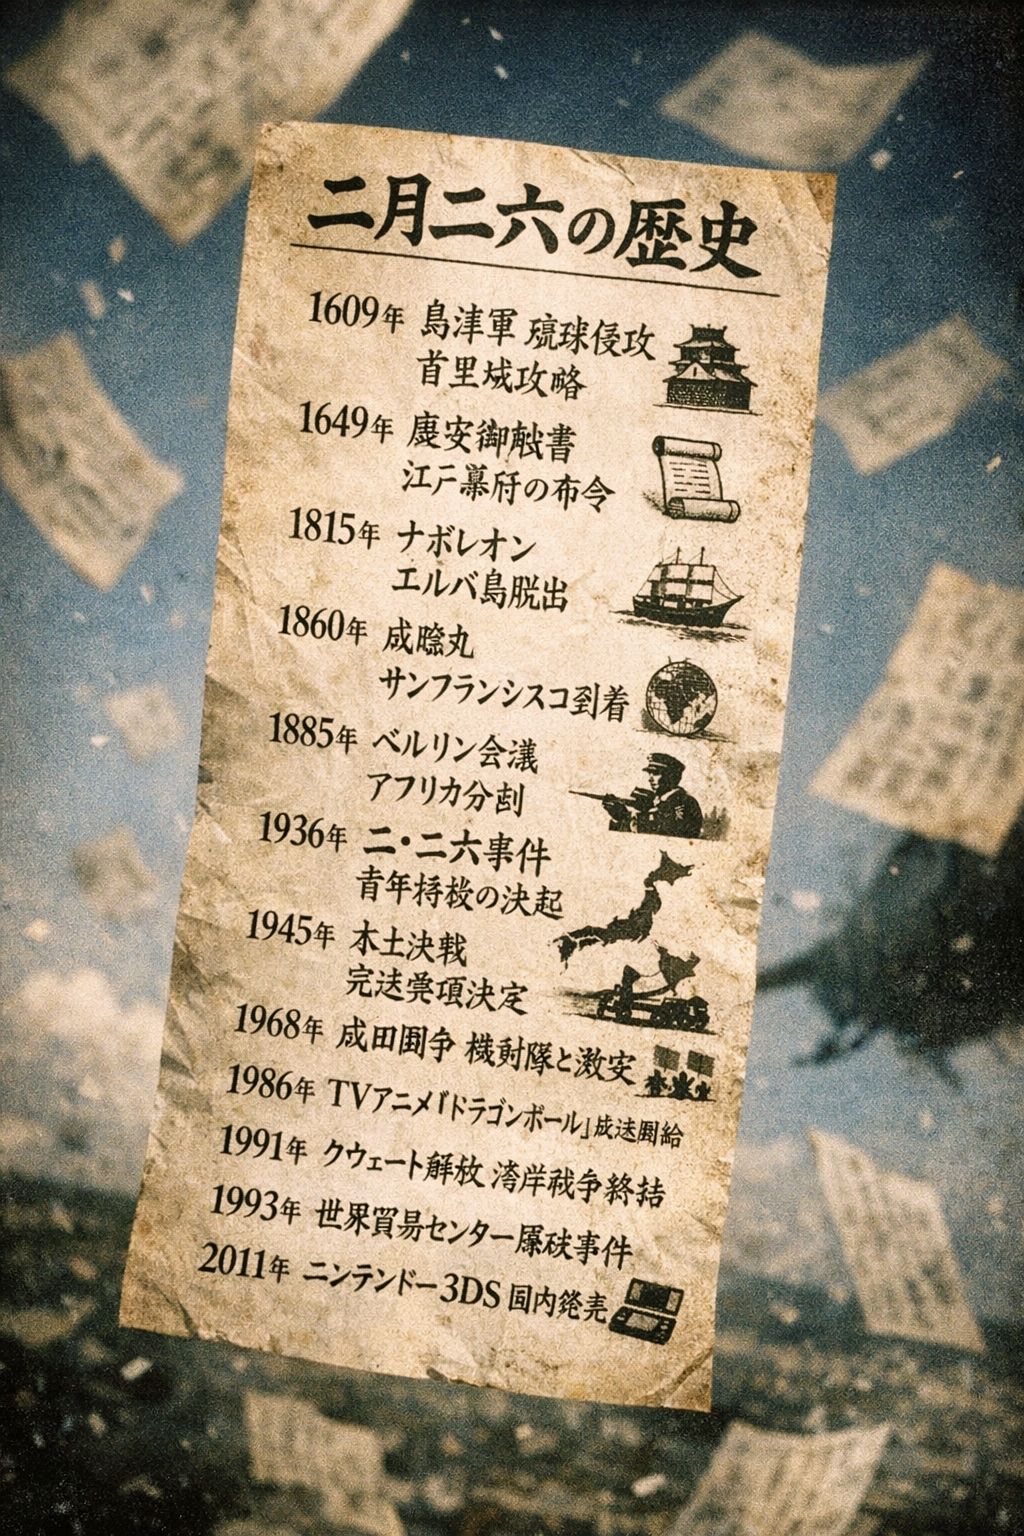 二月二六の歴史
1609年 島津軍 琉球侵攻
首里城攻略
1649年 慶安御触書
江戸幕府の布令
1815年 ナポレオン
エルバ島脱出
1860年 咸臨丸
サンフランシスコ到着
1885年 ベルリン会議
アフリカ分割
1936年 二・二六事件
青年将校の決起
1945年 本土決戦
決定
1968年 成田闘争 機動隊と
1986年 TVアニメ「ドラゴンボール」
1991年 クウェート解放 湾岸戦争終結
1993年 世界貿易センター爆破事件
2011年 ニンテンドー3DS 国内発売